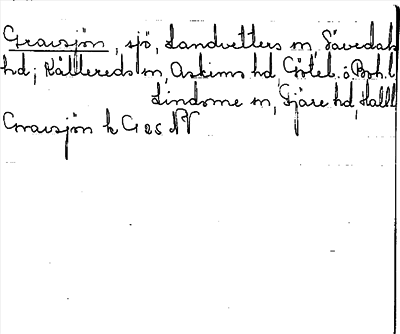 Gravsjön, sjö, Landvetters sn, Sävedals
hd; Kållereds sn, Askims hd, Göteb. o. Boh. l
Lindome sn, Fjäre hd, Hall l
Gravsjön k G 25 NV